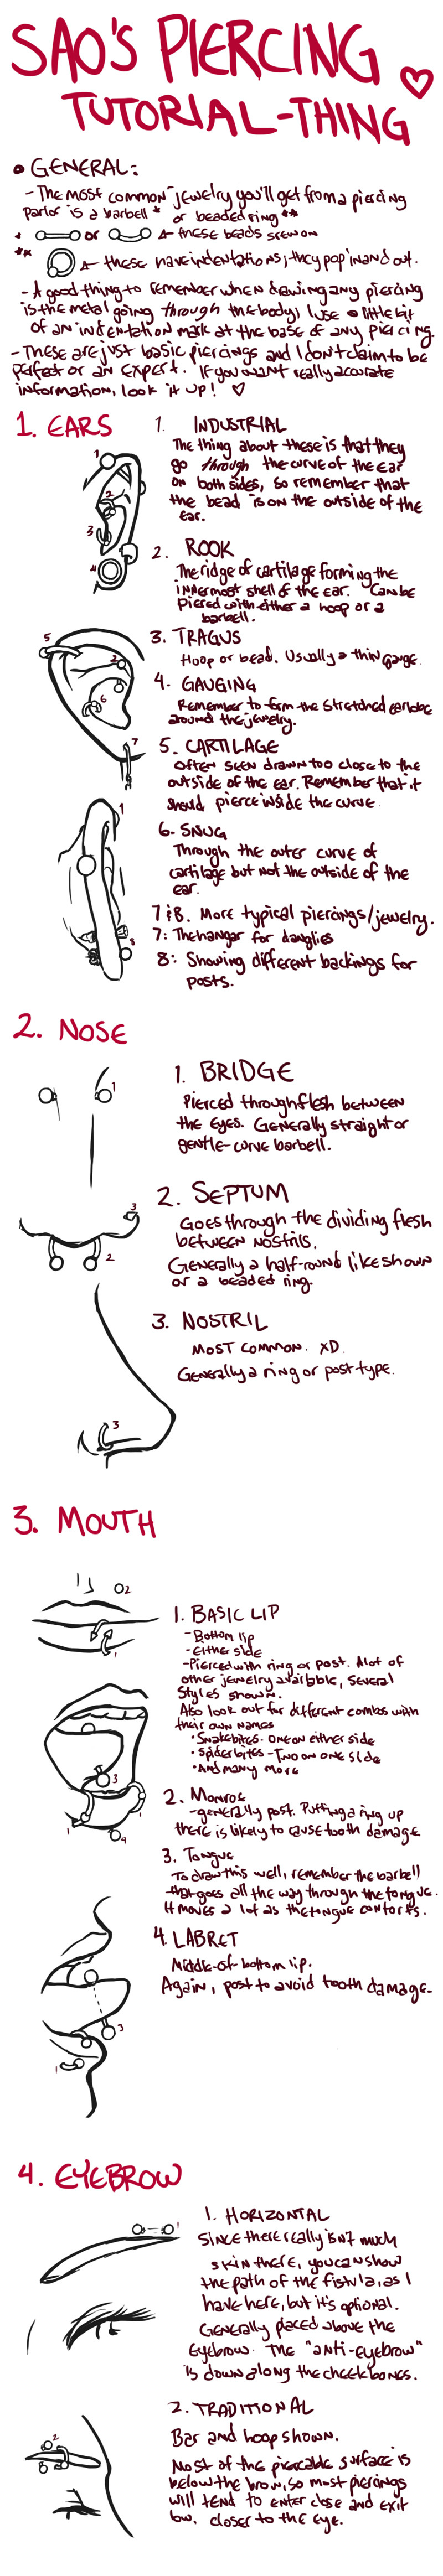 SAO'S PIERCING
TUTORIAL-THING
• GENERAL:
- The most common jewelry you'll get from a piercing
parlor is a barbell* or beaded ring**
* or ← these beads screw on
** ← these have indentations; they pop in and out.
- A good thing to remember when drawing any piercing
is the metal going through the body, I use a little bit
of an indentation mark at the base of any piercing.
- These are just basic piercings and I don't claim to be
perfect or an expert. If you want really accurate
information, look it up! ♡
1. EARS
1. INDUSTRIAL
The thing about these is that they
go through the curve of the ear
on both sides, so remember that
the bead is on the outside of the
ear.
2. ROOK
The ridge of cartilage forming the
innermost shell of the ear. Can be
pierced with either a hoop or a
barbell.
3. TRAGUS
Hoop or bead. Usually a thin gauge.
4. GAUGING
Remember to form the stretched earlobe
around the jewelry.
5. CARTILAGE
Often seen drawn too close to the
outside of the ear. Remember that it
should pierce inside the curve.
6. SNUG
Through the outer curve of
cartilage but not the outside of the
ear.
7 & 8. More typical piercings/jewelry.
7: The hangar for danglies
8: Showing different backings for
posts.
1
2
3
4
5
2
6
7
1
8
2. NOSE
1. BRIDGE
Pierced through flesh between
the eyes. Generally straight or
gentle-curve barbell.
2. SEPTUM
Goes through the dividing flesh
between nostrils.
Generally a half-round like shown
or a beaded ring.
3. NOSTRIL
MOST COMMON. XD
Generally a ring or post-type.
1
3
2
3
3. MOUTH
1. BASIC LIP
- Bottom lip
- Either side
- Pierced with ring or post. A lot of
other jewelry available, several
styles shown.
Also look out for different combos with
their own names
• Snakebites - one on either side
• Spiderbites - Two on one side
• And many more
2. Monroe
- generally post. Putting a ring up
there is likely to cause tooth damage.
3. Tongue
To draw this well, remember the barbell
that goes all the way through the tongue.
It moves a lot as the tongue contorts.
4. LABRET
Middle-of-bottom lip.
Again, post to avoid tooth damage.
2
1
3
1
1
4
3
1
4. EYEBROW
1. HORIZONTAL
Since there really isn't much
skin there, you can show
the path of the fistula, as I
have here, but it's optional.
Generally placed above the
eyebrow. The "anti-eyebrow"
is down along the cheekbones.
2. TRADITIONAL
Bar and hoop shown.
Most of the pierceable surface is
below the brow, so most piercings
will tend to enter close and exit
low, closer to the eye.
1
2